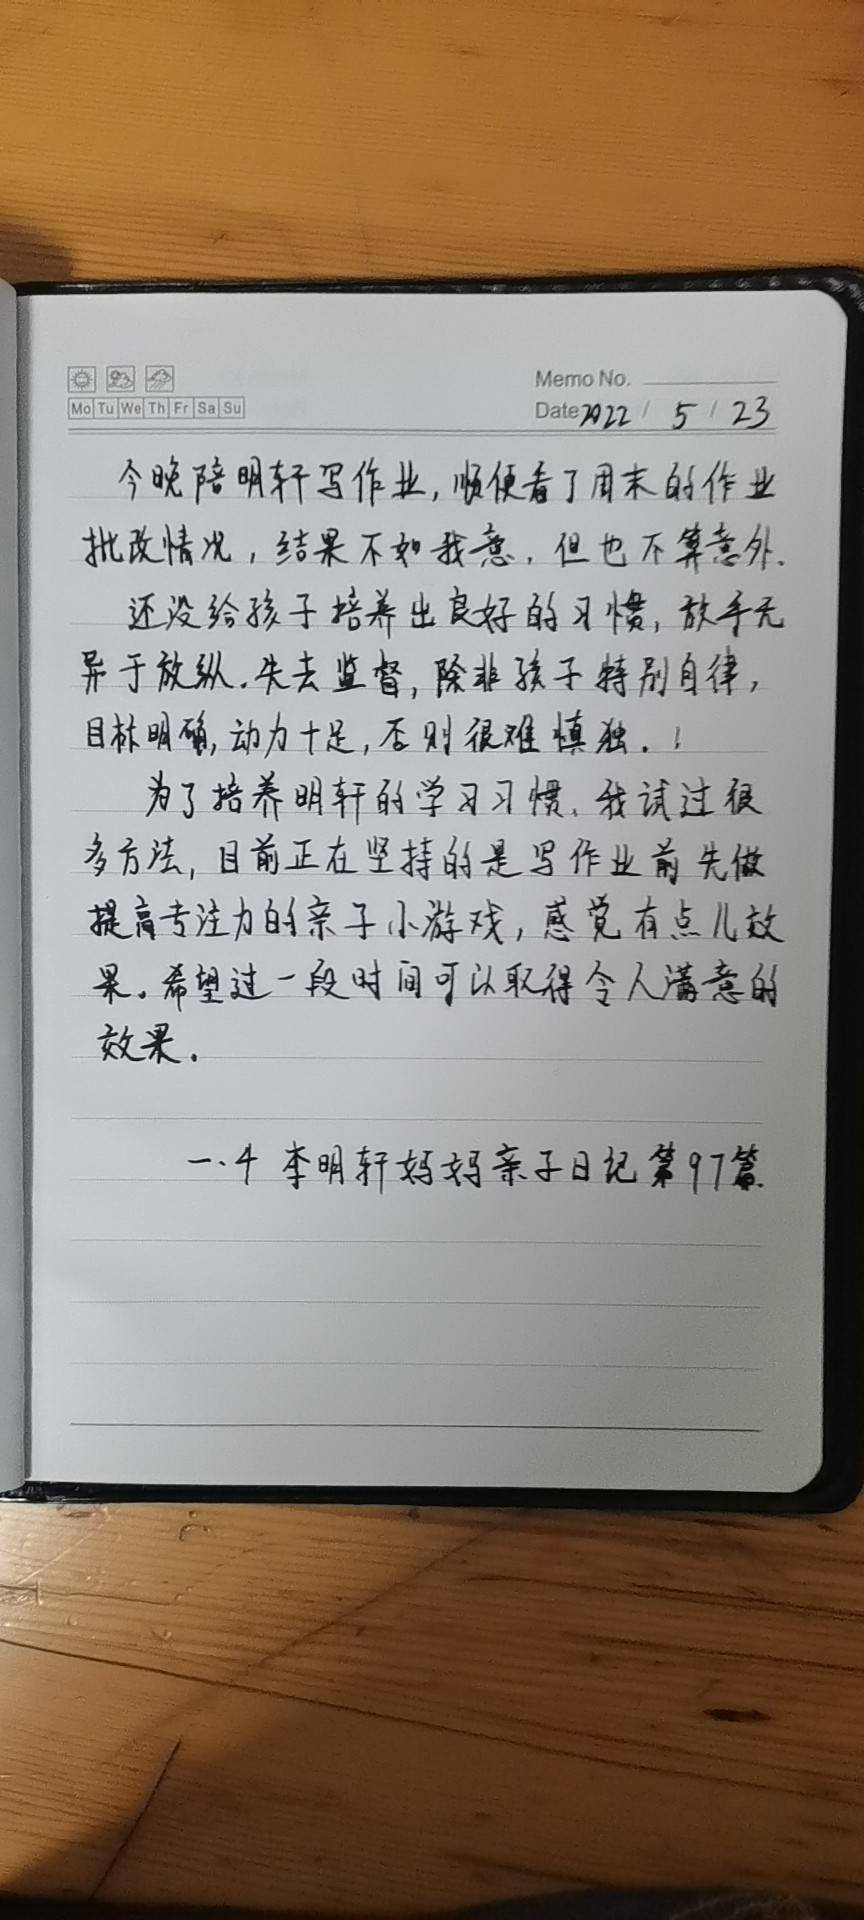 Memo No.
Mo Tu We Th Fr Sa Su
Date 2022 / 5 / 23
今晚陪明轩写作业,顺便看了周末的作业
批改情况,结果不如我意,但也不算意外.
还没给孩子培养出良好的习惯,放手无
异于放纵.失去监督,除非孩子特别自律,
目标明确,动力十足,否则很难慎独.!
为了培养明轩的学习习惯.我试过很
多方法,目前正在坚持的是写作业前先做
提高专注力的亲子小游戏,感觉有点儿效
果。希望过一段时间可以取得令人满意的
效果.
一.4 李明轩妈妈亲子日记第97篇.